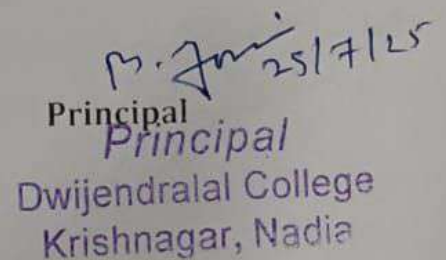 25/7/25
Principal
Principal
Dwijendralal College
Krishnagar, Nadia